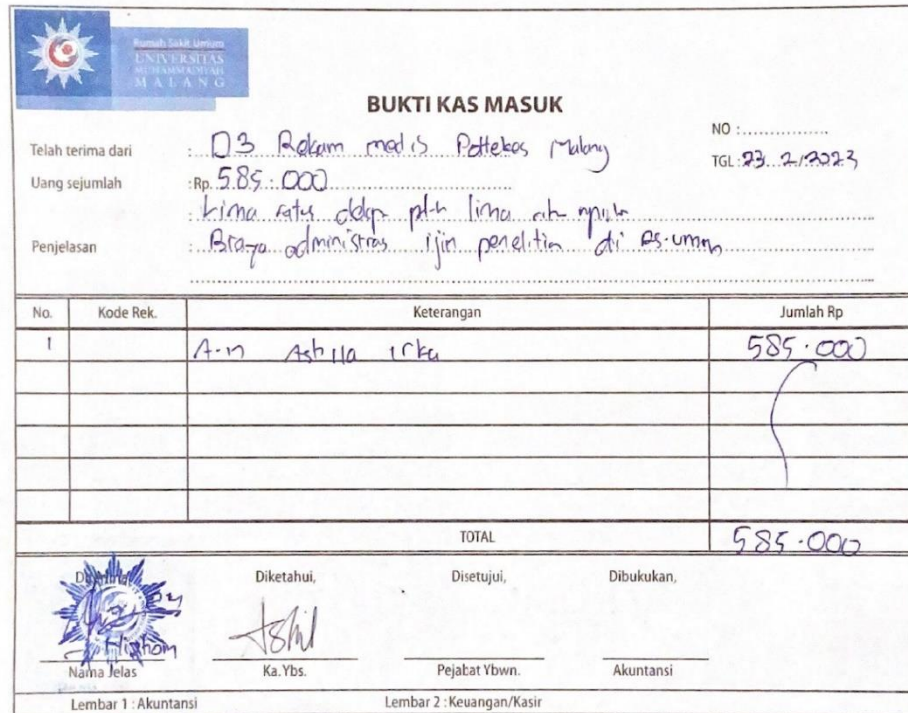 Rumah Sakit Umum
UNIVERSITAS
MUHAMMADIYAH
MALANG
BUKTI KAS MASUK
NO :
Telah terima dari : D3 Rekam medis Poltekes Malang
TGL : 23. 2/2023
Uang sejumlah : Rp. 585.000
Lima ratus delapan plh lima
Penjelasan : Biaya administras ijin penelitin di RS.umm
No. Kode Rek. Keterangan Jumlah Rp
1 A.n Ashila Irka 585.000
TOTAL 585.000
Diterima, Diketahui, Disetujui, Dibukukan,
Nama Jelas Ka. Ybs. Pejabat Ybwn. Akuntansi
Lembar 1 : Akuntansi Lembar 2 : Keuangan/Kasir